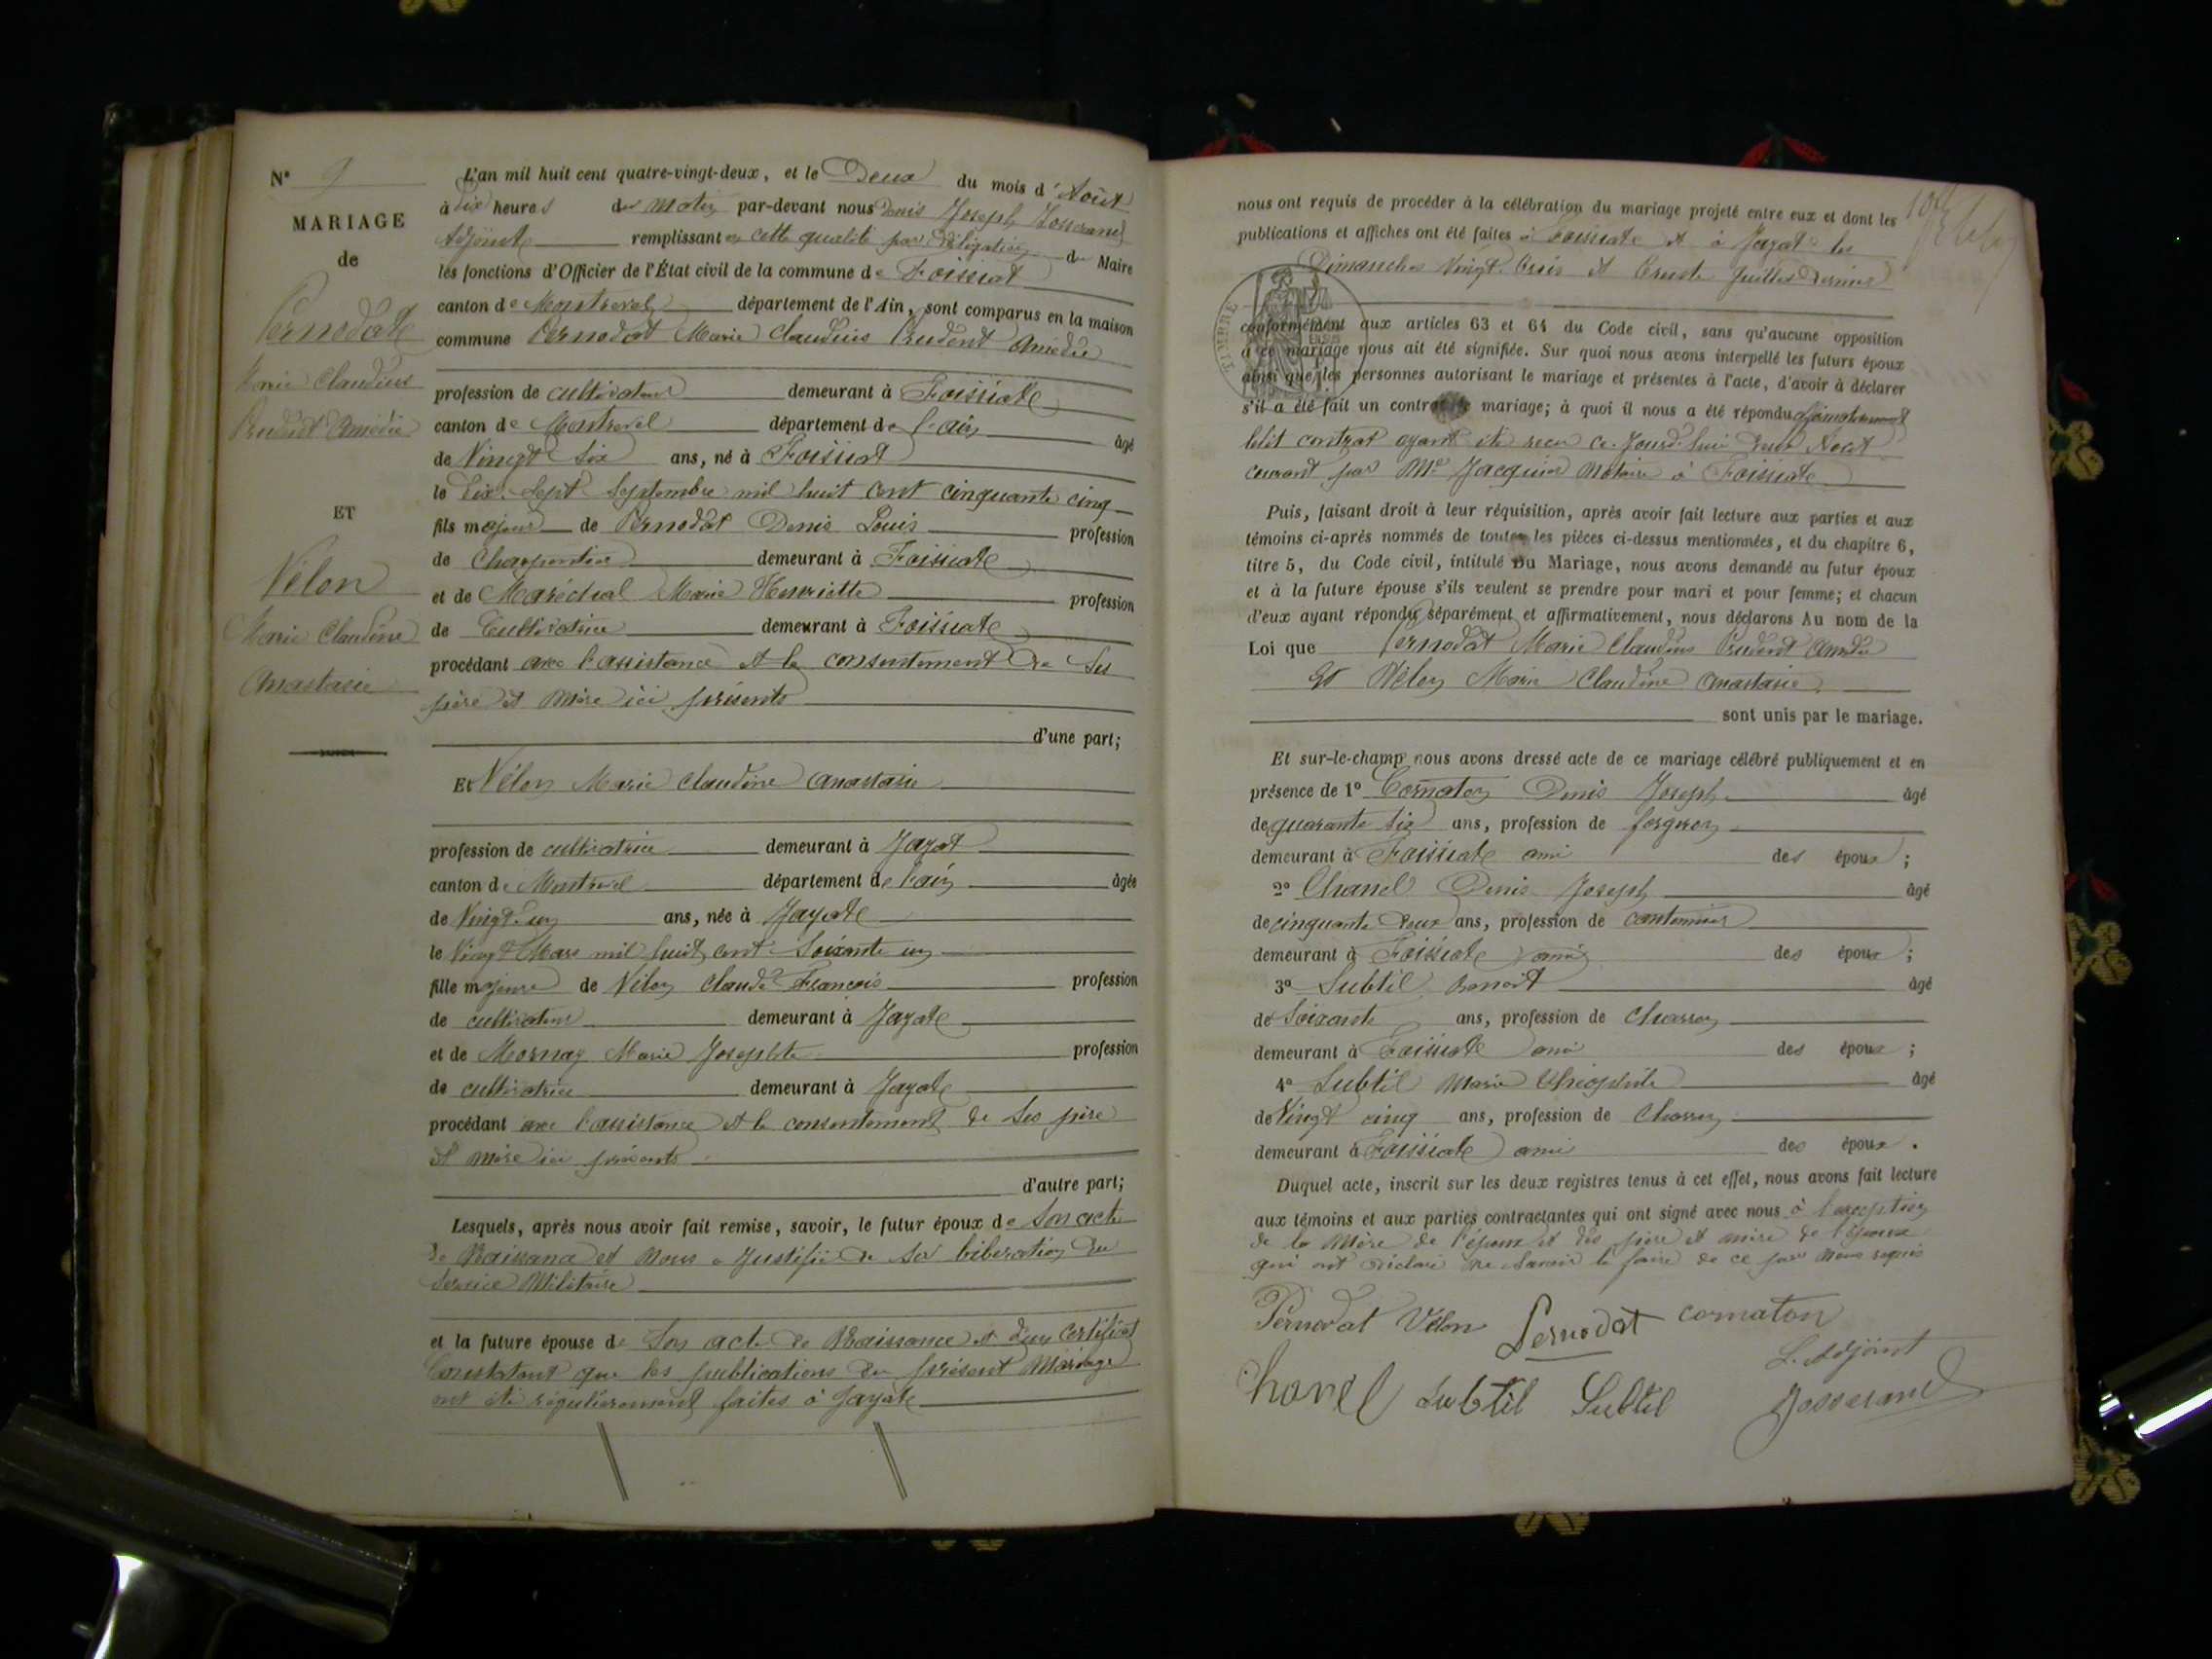 N° 9
MARIAGE
de
Pernodat
Marie Claudius
Prudent Amédée
ET
Vélon
Marie Claudine
Anastasie
L'an mil huit cent quatre-vingt-deux, et le Deux du mois d'Août
à dix heures du matin par-devant nous Denis Joseph Josserand
Adjoint remplissant en cette qualité par délégation du Maire
les fonctions d'Officier de l'État civil de la commune de Foissiat
canton de Montrevel département de l'Ain, sont comparus en la maison
commune Pernodat Marie Claudius Prudent Amédée
profession de cultivateur demeurant à Foissiat
canton de Montrevel département de l'ain âgé
de Vingt Six ans, né à Foissiat
le Dix-Sept Septembre mil huit cent cinquante cinq
fils majeur de Pernodat Denis Louis profession
de Charpentier demeurant à Foissiat
et de Maréchal Marie Henriette profession
de Cultivatrice demeurant à Foissiat
procédant avec l'assistance et le consentement de Ses
père et Mère ici présents
d'une part;
Et Vélon Marie Claudine Anastasie
profession de cultivatrice demeurant à Jayat
canton de Montrevel département de l'ain âgée
de Vingt-un ans, née à Jayat
le Vingt Mars mil huit cent Soixante un
fille majeure de Vélon Claude François profession
de cultivateur demeurant à Jayat
et de Mornay Marie Josephte profession
de cultivatrice demeurant à Jayat
procédant avec l'assistance et le consentement de Ses père
et mère ici présents
d'autre part;
Lesquels, après nous avoir fait remise, savoir, le futur époux de Son acte
de Naissance et Nous a Justifié de Sa libération du
Service Militaire
et la future épouse de Son acte de Naissance et d'un Certificat
Constatant que les publications du présent Mariage
ont été régulièrement faites à Jayat
nous ont requis de procéder à la célébration du mariage projeté entre eux et dont les
publications et affiches ont été faites à Foissiat et à Jayat les
Dimanches Vingt-trois et trente Juillet dernier
TIMBRE
conformément aux articles 63 et 64 du Code civil, sans qu'aucune opposition
à ce mariage nous ait été signifiée. Sur quoi nous avons interpellé les futurs époux
ainsi que les personnes autorisant le mariage et présentes à l'acte, d'avoir à déclarer
s'il a été fait un contrat de mariage; à quoi il nous a été répondu affirmativement
ledit contrat ayant été reçu ce-Jourd'hui deux Août
courant par Me Jacquier Notaire à Foissiat
Puis, faisant droit à leur réquisition, après avoir fait lecture aux parties et aux
témoins ci-après nommés de toutes les pièces ci-dessus mentionnées, et du chapitre 6,
titre 5, du Code civil, intitulé Du Mariage, nous avons demandé au futur époux
et à la future épouse s'ils veulent se prendre pour mari et pour femme; et chacun
d'eux ayant répondu séparément et affirmativement, nous déclarons Au nom de la
Loi que Pernodat Marie Claudius Prudent Amédée
Et Vélon Marie Claudine Anastasie
sont unis par le mariage.
Et sur-le-champ nous avons dressé acte de ce mariage célébré publiquement et en
présence de 1° Cornaton Denis Joseph âgé
de quarante Six ans, profession de forgeron
demeurant à Foissiat ami des époux;
2° Chanel Denis Joseph âgé
de cinquante deux ans, profession de cantonnier
demeurant à Foissiat ami des époux;
3° Subtil Benoit âgé
de Soixante ans, profession de Charron
demeurant à Foissiat ami des époux;
4° Subtil Marie Théophile âgé
de Vingt cinq ans, profession de Charron
demeurant à Foissiat ami des époux.
Duquel acte, inscrit sur les deux registres tenus à cet effet, nous avons fait lecture
aux témoins et aux parties contractantes qui ont signé avec nous à l'exception
de la Mère de l'époux et des père et mère de l'épouse
qui ont déclaré ne Savoir le faire de ce par Nous requis
Pernodat Vélon Pernodat cornaton
L'Adjoint
Chanel Subtil Subtil Josserand